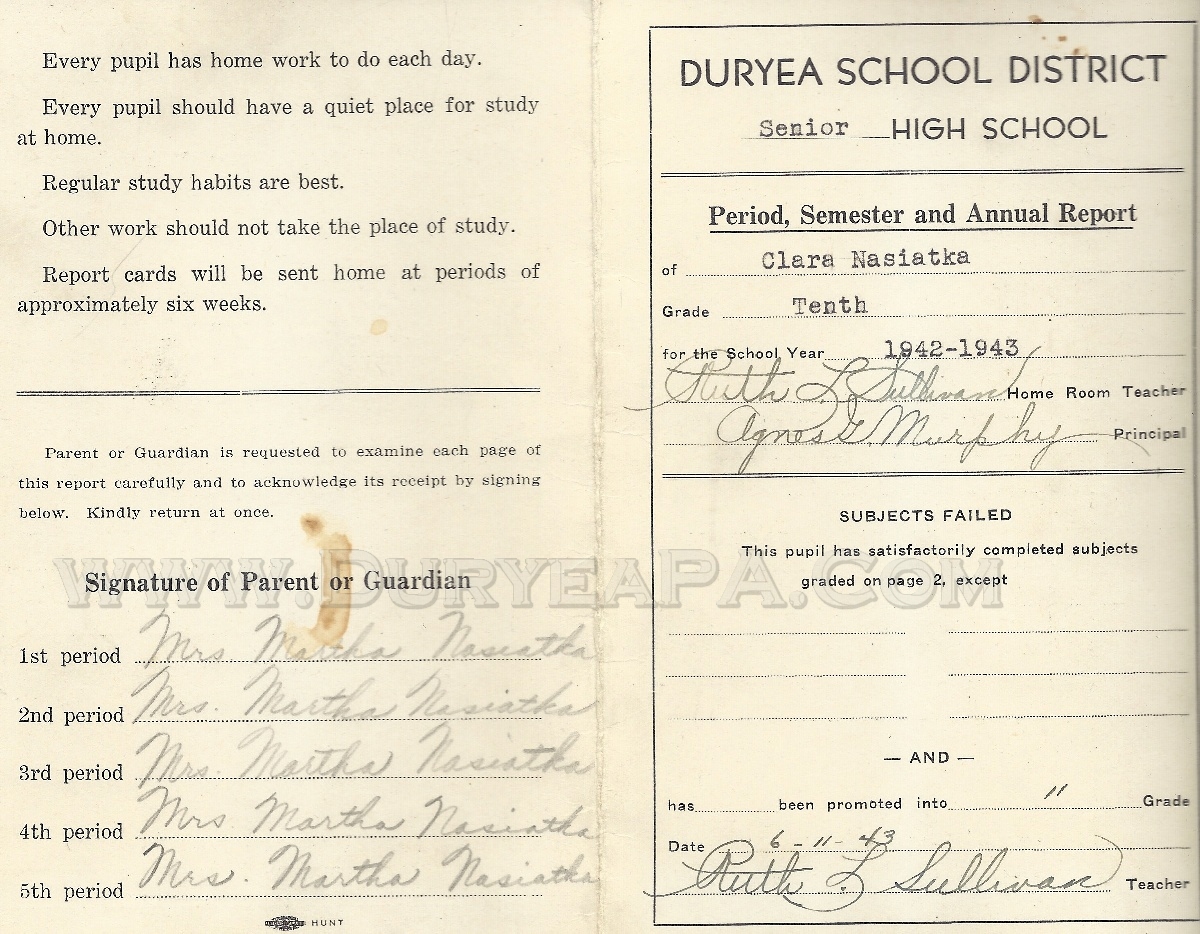 Every pupil has home work to do each day.
Every pupil should have a quiet place for study
at home.
Regular study habits are best.
Other work should not take the place of study.
Report cards will be sent home at periods of
approximately six weeks.
Parent or Guardian is requested to examine each page of
this report carefully and to acknowledge its receipt by signing
below. Kindly return at once.
Signature of Parent or Guardian
1st period Mrs Martha Nasiatka
2nd period Mrs. Martha Nasiatka
3rd period Mrs. Martha Nasiatka
4th period Mrs Martha Nasiatka
5th period Mrs. Martha Nasiatka
HUNT
DURYEA SCHOOL DISTRICT
Senior HIGH SCHOOL
Period, Semester and Annual Report
of Clara Nasiatka
Grade Tenth
for the School Year 1942-1943
Ruth L Sullivan Home Room Teacher
Agnes G. Murphy Principal
SUBJECTS FAILED
This pupil has satisfactorily completed subjects
graded on page 2, except
— AND —
has been promoted into 11 Grade
Date 6-11-43
Ruth L Sullivan Teacher
www.DuryeaPA.com